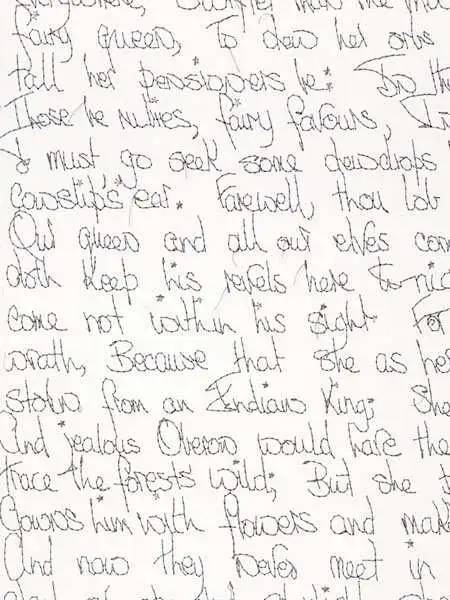 everywhere, Swifter than the moo
fairy queen, To dew her orbs
tall her pensioners be: In th
Those be rubies, fairy favours, In
I must go seek some dewdrops
cowslip's ear. Farewell, thou lob
Our queen and all our elves com
doth keep his revels here to-nig
come not within his sight For
wrath, Because that she as her
stolen from an Indian King; She
And jealous Oberon would have the
trace the forests wild; But she
Crowns him with flowers and mak
And now they never meet in